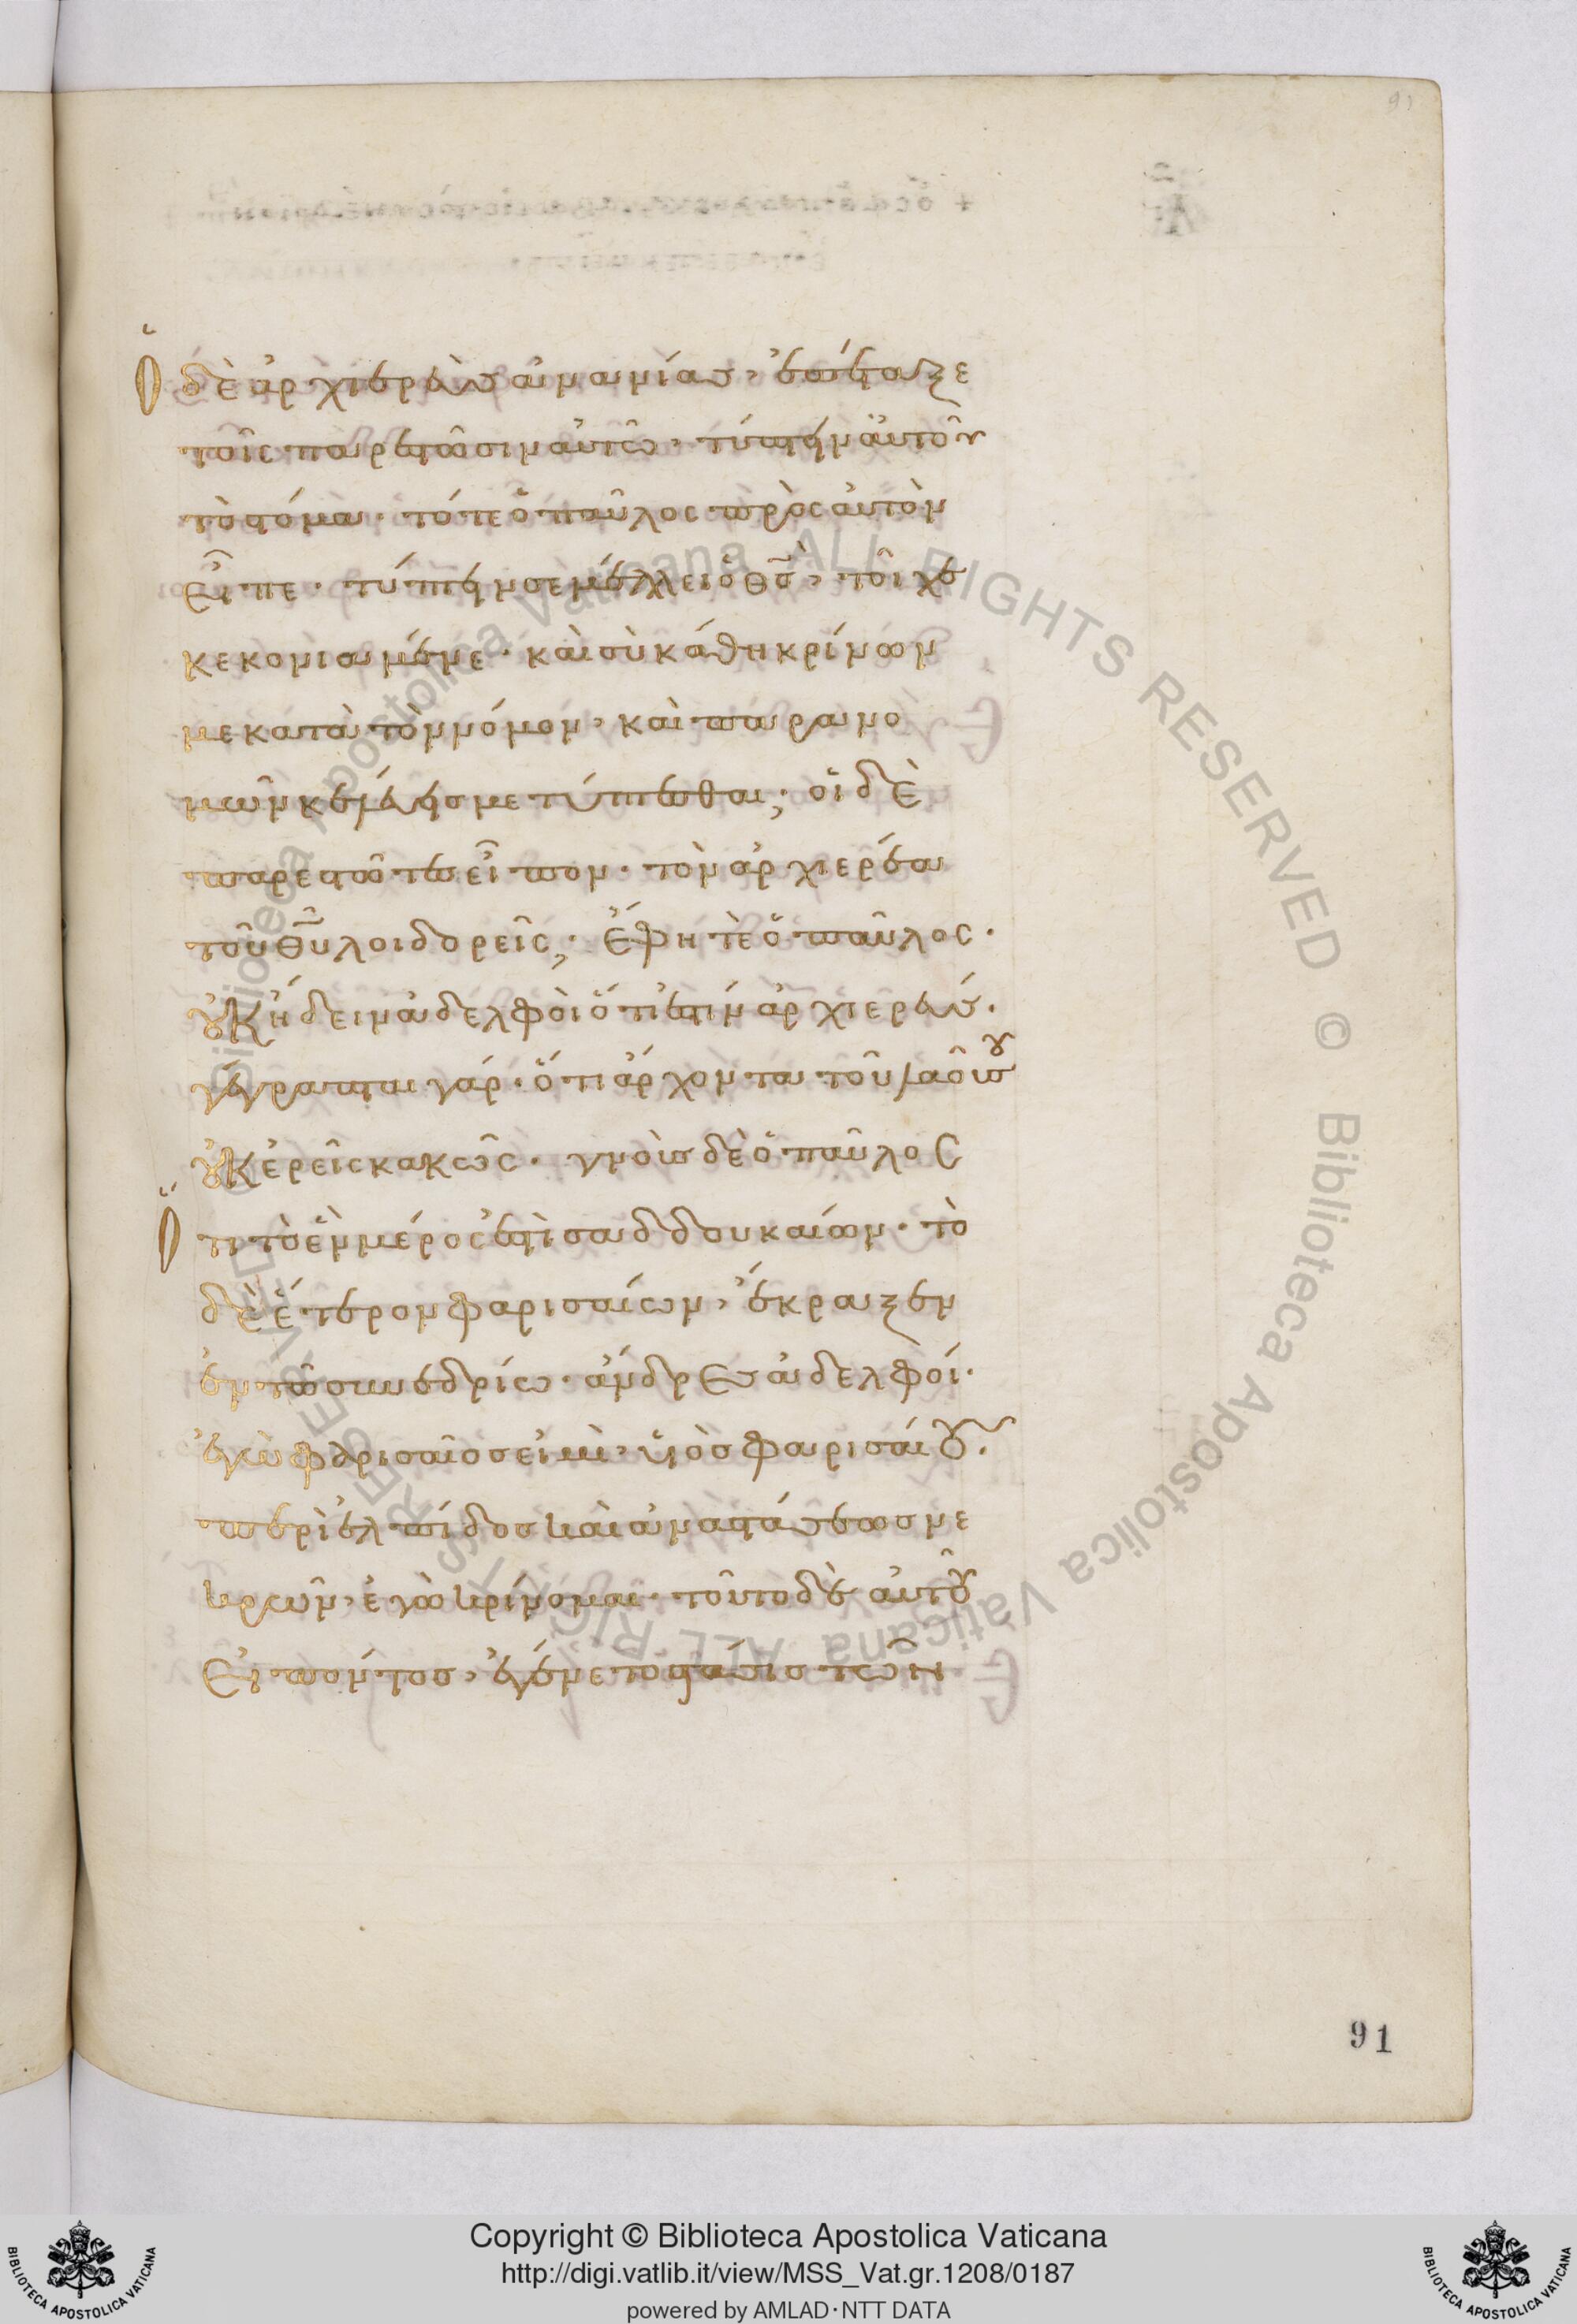 91
Ὁ δὲ ἀρχιερεὺς ἀνανίας, ἐπέταξε
τοῖς παρεστῶσιν αὐτῶ, τύπτειν αὐτοῦ
τὸ στόμα. τότε ὁ παῦλος πρὸς αὐτὸν
εἶπε. τύπτειν σε μέλλει ὁ θσ, τοῖχε
κεκονιαμένε. καὶ σὺ κάθη κρίνων
με κατὰ τὸν νόμον, καὶ παρανο
μῶν κελεύεις με τύπτεσθαι; οἱ δὲ
παρεστῶτες εἶπον. τὸν ἀρχιερέα
τοῦ θυ λοιδορεῖς; ἔφη τὲ ὁ παῦλος.
οὐκ ἤδειν ἀδελφοὶ ὅτι ἐστὶν ἀρχιερεύς.
γέγραπται γάρ. ὅτι ἄρχοντα τοῦ λαοῦ σου
οὐκ ἐρεῖς κακῶς. γνοὺς δὲ ὁ παῦλος
Ὅτι τὸ ἓν μέρος ἐστὶ σαδδουκαίων. τὸ
δὲ ἕτερον φαρισαίων, ἔκραξεν
ἐν τῶ συνεδρίω. ἄνδρες ἀδελφοί.
ἐγὼ φαρισαῖος εἰμὶ, υἱὸς φαρισαίου.
περὶ ἐλπίδος καὶ ἀναστάσεως νε
κρῶν, ἐγὼ κρίνομαι. τοῦτο δὲ αὐτοῦ
εἰπόντος, ἐγένετο στάσις τῶν
91
Biblioteca Apostolica Vaticana ALL RIGHTS RESERVED © Biblioteca Apostolica Vaticana ALL RIGHTS RESERVED ©
Copyright © Biblioteca Apostolica Vaticana
http://digi.vatlib.it/view/MSS_Vat.gr.1208/0187
powered by AMLAD·NTT DATA
BIBLIOTECA APOSTOLICA VATICANA
BIBLIOTECA APOSTOLICA VATICANA